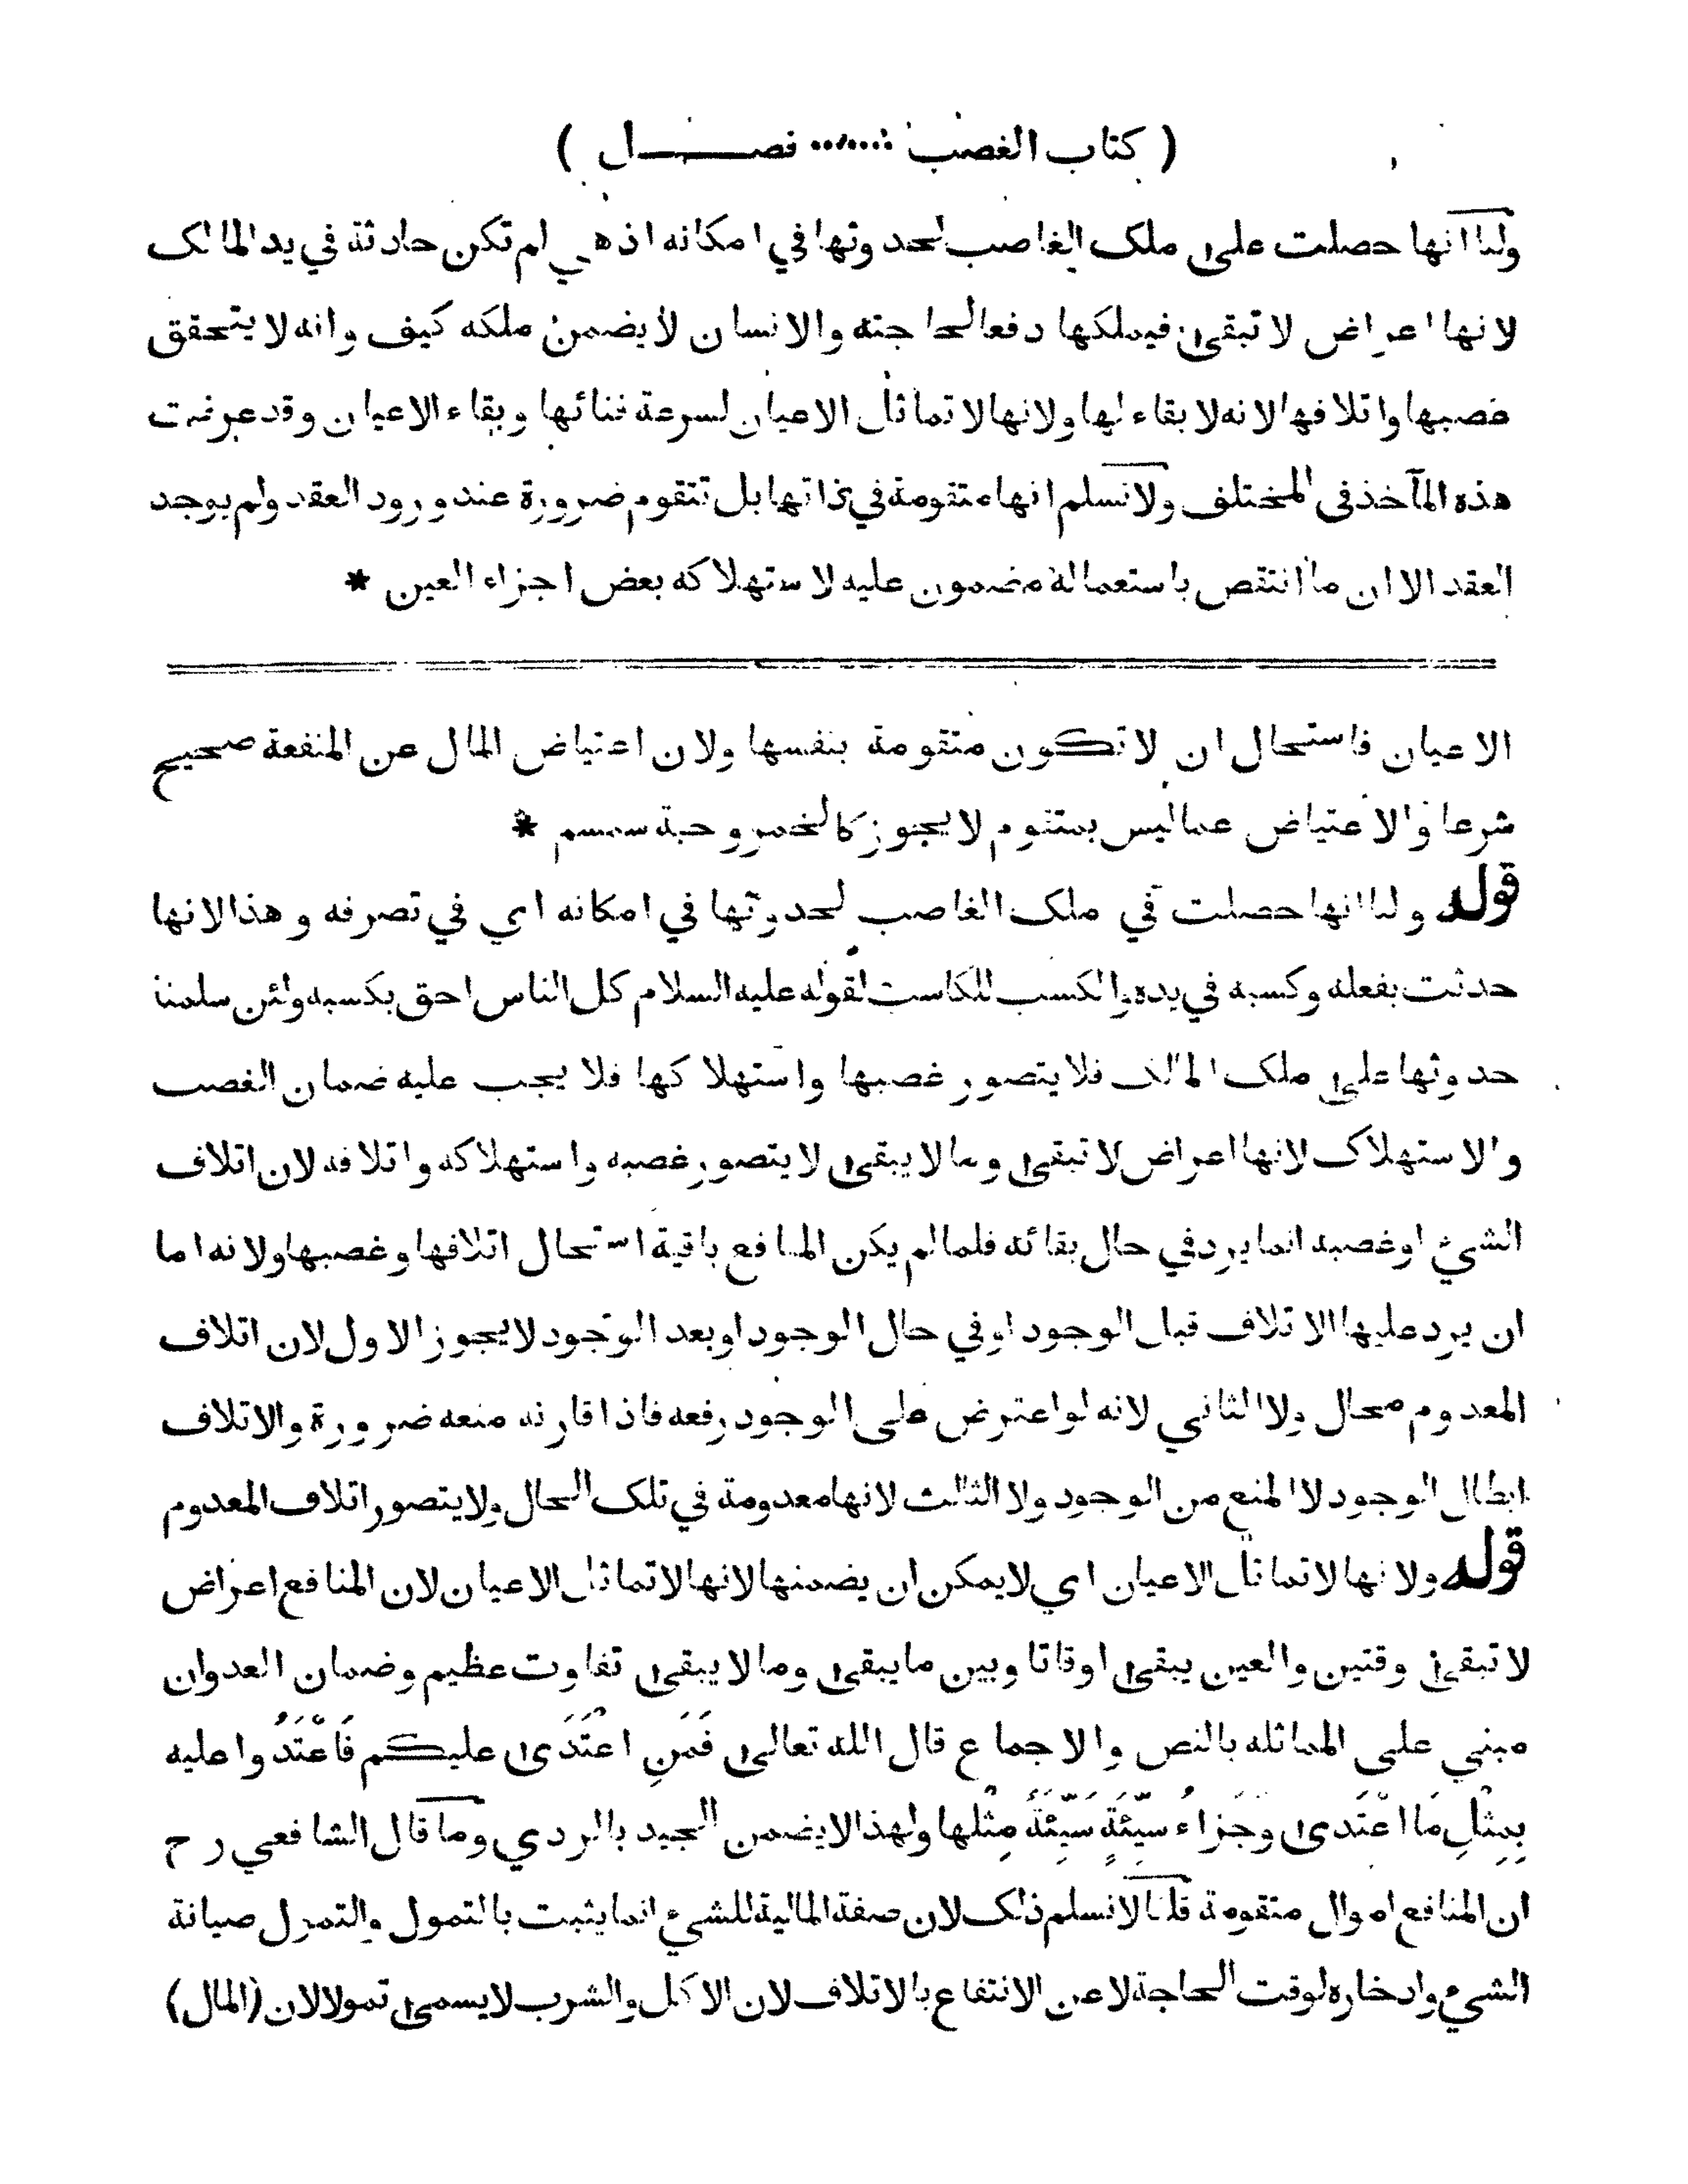 ( كتاب الغصب ...... فصــــل )
ولنا انها حصلت على ملك الغاصب لحدوثها في امكانه اذ هي لم تكن حادثة في يد المالك
لانها اعراض لا تبقى فيملكها دفعا لحاجته والانسان لا يضمن ملكه كيف وانه لا يتحقق
غصبها واتلافها لانه لا بقاء لها ولانها لا تماثل الاعيان لسرعة فنائها وبقاء الاعيان وقد عرفت
هذه المآخذ في المختلف ولا نسلم انها متقومة في ذاتها بل تتقوم ضرورة عند ورود العقد ولم يوجد
العقد الا ان ما انتقص باستعماله مضمون عليه لاستهلاكه بعض اجزاء العين *
الاعيان فاستحال ان لا تكون متقومة بنفسها ولان اعتياض المال عن المنفعة صحيح
شرعا والاعتياض عما ليس بمتقوم لا يجوز كالخمر وحبة سمسم *
قوله ولنا انها حصلت في ملك الغاصب لحدوثها في امكانه اي في تصرفه وهذا لانها
حدثت بفعله وكسبه في يده والكسب للكاسب لقوله عليه السلام كل الناس احق بكسبه ولئن سلمنا
حدوثها على ملك المالك فلا يتصور غصبها واستهلاكها فلا يجب عليه ضمان الغصب
والاستهلاك لانها اعراض لا تبقى وما لا يبقى لا يتصور غصبه واستهلاكه واتلافه لان اتلاف
الشيء او غصبه انما يرد في حال بقائه فلما لم يكن المنافع باقية استحال اتلافها وغصبها ولانه اما
ان يرد عليها الاتلاف قبل الوجود او في حال الوجود او بعد الوجود لا يجوز الاول لان اتلاف
المعدوم محال ولا الثاني لانه لو اعترض على الوجود رفعه فاذا قارنه منعه ضرورة والاتلاف
ابطال الوجود لا المنع من الوجود ولا الثالث لانها معدومة في تلك الحال ولا يتصور اتلاف المعدوم
قوله ولانها لا تماثل الاعيان اي لا يمكن ان يضمنها لانها لا تماثل الاعيان لان المنافع اعراض
لا تبقى وقتين والعين يبقى اوقاتا وبين ما يبقى وما لا يبقى تفاوت عظيم وضمان العدوان
مبني على المماثله بالنص والاجماع قال الله تعالى فَمَنِ اعْتَدَى عليكم فَاعْتَدُوا عليه
بِمِثْلِ مَا اعْتَدى وَجَزاءُ سَيِّئَةٍ سَيِّئَةٌ مِثْلها ولهذا لا يضمن الجيد بالردي وما قال الشافعي رح
ان المنافع اموال متقومة قلنا لا نسلم ذلك لان صفة المالية للشيء انما يثبت بالتمول والتمول صيانة
الشيء وادخاره لوقت الحاجة لا عن الانتفاع بالاتلاف لان الاكل والشرب لا يسمى تمولا لان (المال)